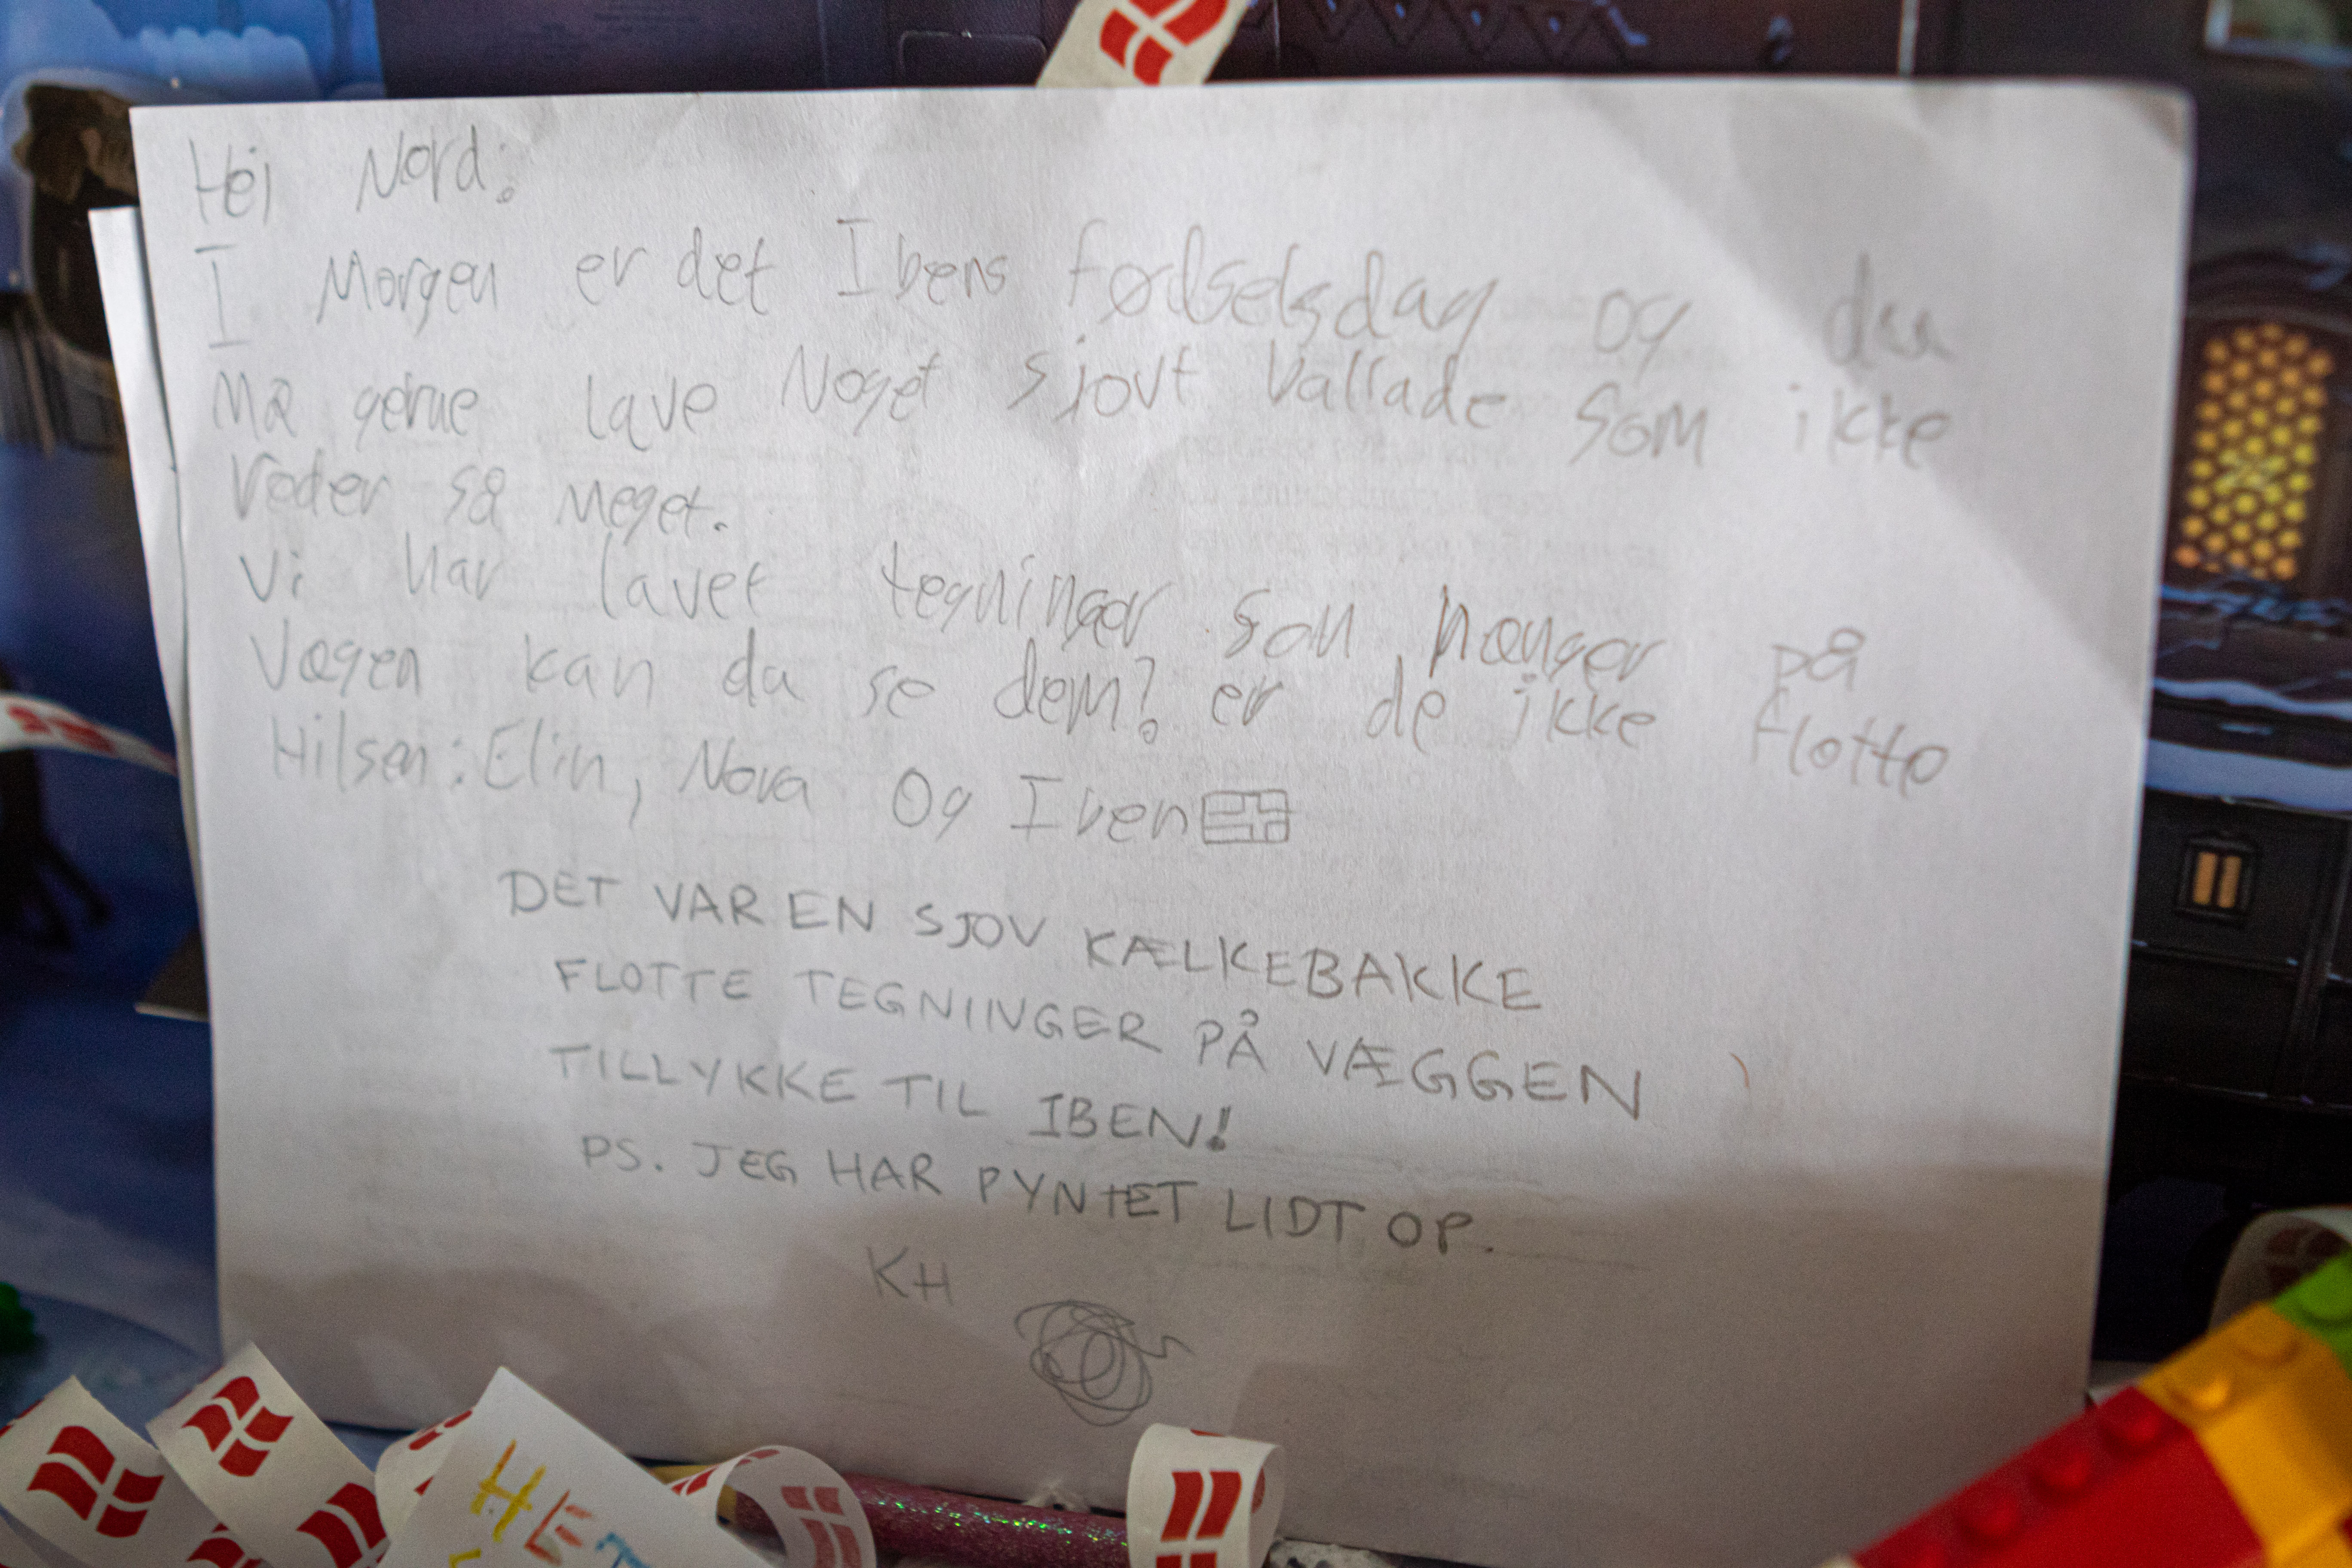 Hej Nord:
I Morgen er det Ibens fødselsdag og du
Må gerne lave Noget sjovt Vallade som ikke
roder så meget.
Vi har lavet tegninger som hænger på
Vægen kan du se dem? er de ikke flotte
Hilsen: Elin, Nova Og Iben
DET VAR EN SJOV KÆLKEBAKKE
FLOTTE TEGNINGER PÅ VÆGGEN
TILLYKKE TIL IBEN!
PS. JEG HAR PYNTET LIDT OP.
KH
HET